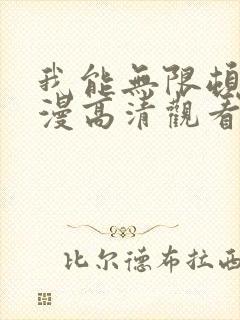 我能無限頓
漫高清觀看
比尔德布拉西